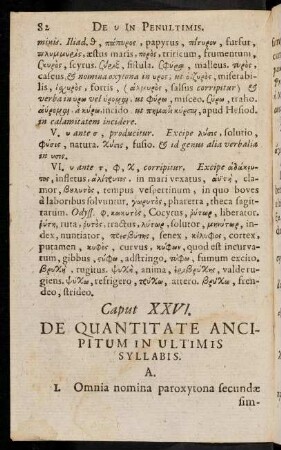 82 DE υ IN PENULTIMIS.
minis. Iliad. θ, πάπυρος, papyrus, πίτυρον, furfur,
πλημμυρὶς, æstus maris, πυρὸς, triticum, frumentum,
Σκυρὸς, scyrus. fistula. Σφῦρα, malleus. τυρὸς,
caseus, & nomina oxytona in υρος, ut οἰζυρὸς, miserabi-
lis, ἰσχυρὸς, fortis. ( ἁλμυρὸς, salsus corripitur) &
verba in υρω vel ut φύρω, misceo. ξύρω, trado.
incido. ut apud Hesiod.
in calamitatem incidere.
V. υ ante σ, producitur. Excipe λύσις, solutio,
φύσις, natura. Χύσις, fusio. & id genus alia verbalia
in υσις.
VI. υ ante τ, φ, χ, corripitur. Excipe ἀδάκρυ-
τος, infletus, in mari vexatus, ἀϋτὴ, cla-
mor, βουλυτὸς, tempus vespertinum, in quo boves
à laboribus solvuntur, γωρυτὸς, pharetra, theca sagit-
tarum. Odyss. φ, κωκυτὸς, Cocytus, ῥύτωρ, liberator.
ruta, ῥυτὸς, tractus, λύτωρ, solutor, μηνύτωρ, in-
dex, nuntiator, πρεσβύτης, senex, κέλυφος, cortex,
putamen, κυφὸς, curvus, κύφων, quod est incurva-
tum, gibbus, τύφω, adstringo, τύφω, fumum excito.
βρυχὴ, rugitus. ψυχὴ, anima, ἐριβρύχης, valde ru-
giens. ψύχω, refrigero, τρύχω, attero. βρύχω, fren-
deo, strideo.
Caput XXVI.
DE QUANTITATE ANCI-
PITUM IN ULTIMIS
SYLLABIS.
A.
I. Omnia nomina paroxytona secundæ
sim-